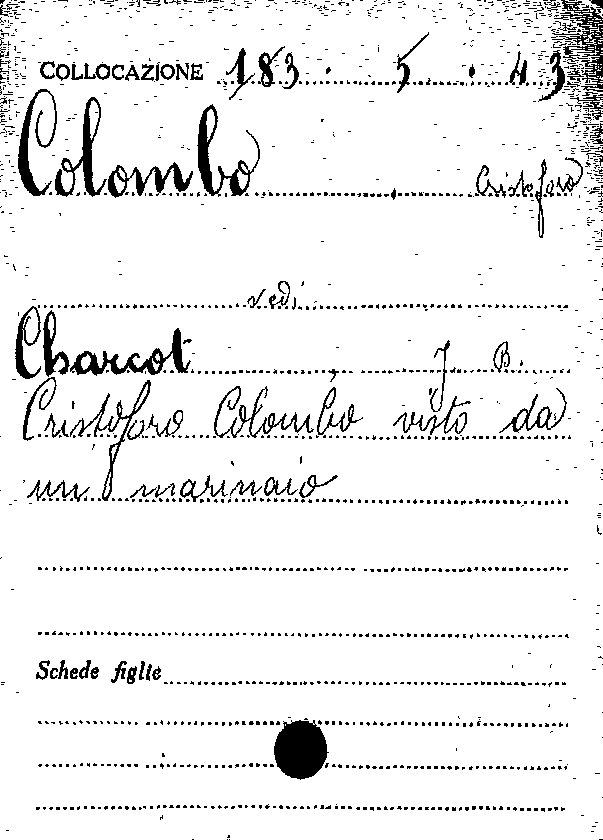 COLLOCAZIONE 183 . 5 . 43
Colombo , Cristoforo
vedi
Charcot , J. B.
Cristoforo Colombo visto da
un marinaio
Schede figlie